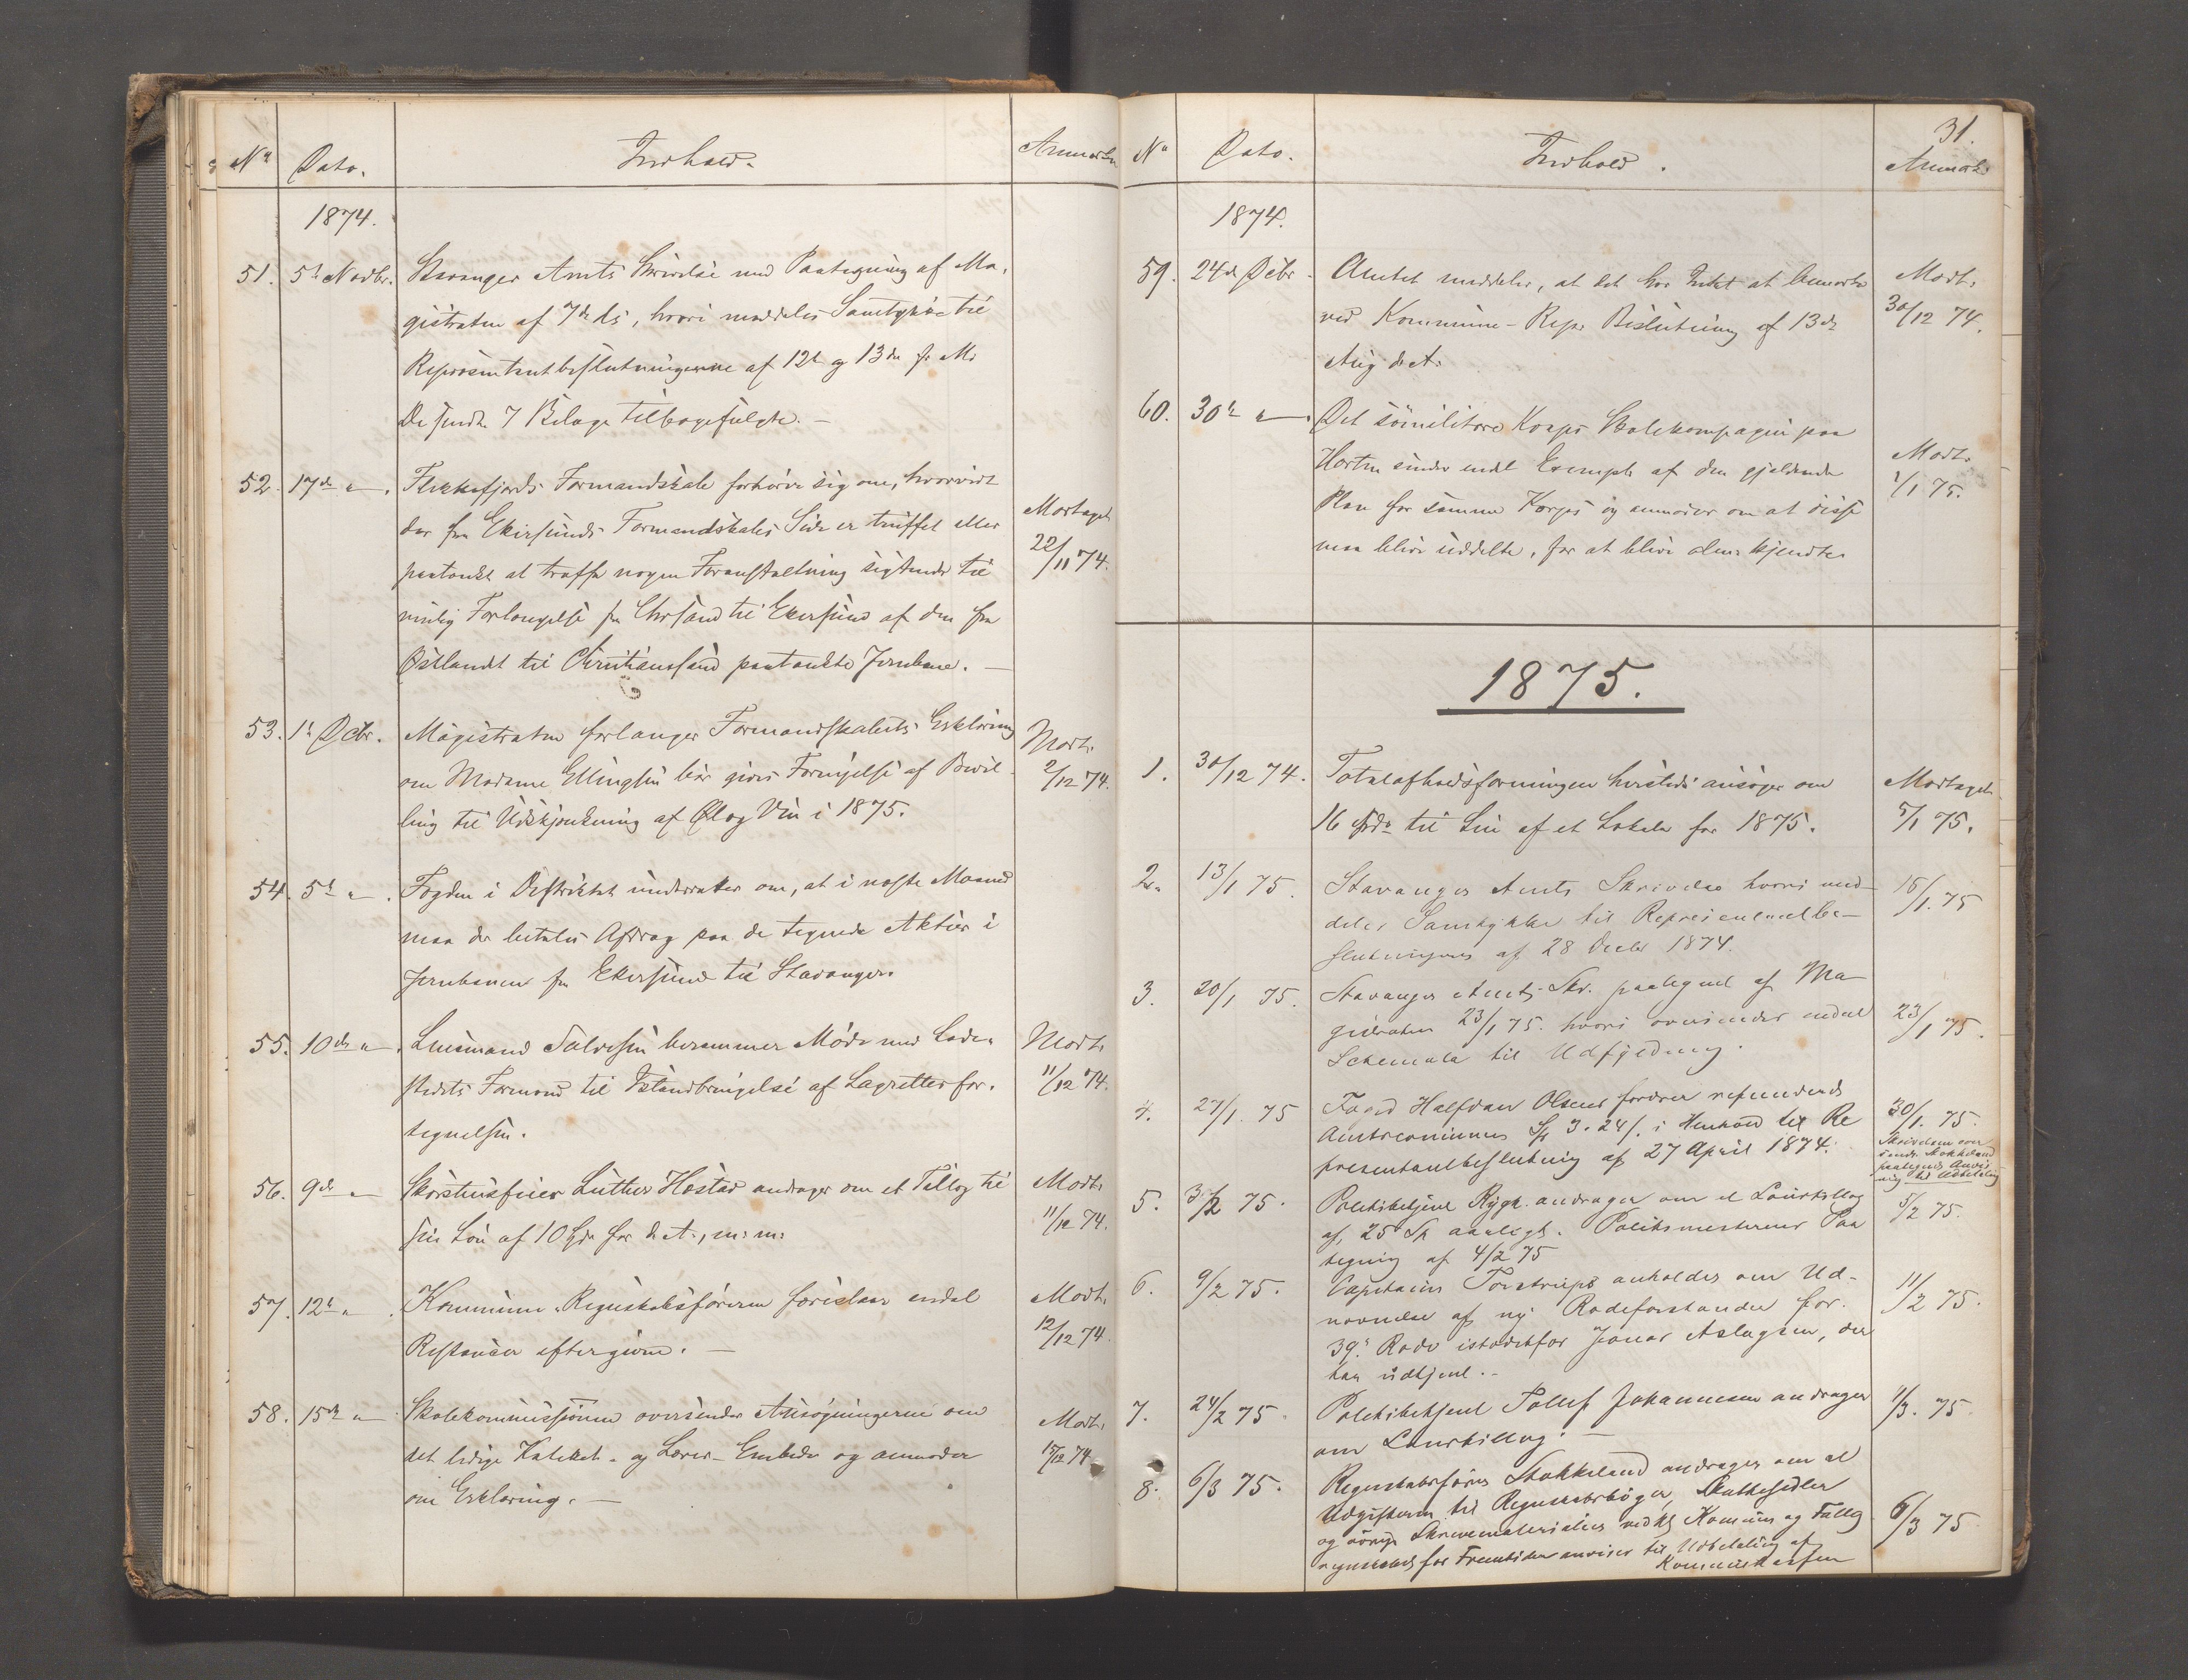 No Dato. Indhold. Anmærkn
1874.
51. 5te Novbr. Stavanger Amts Skrivelse med Paategning af Ma-
gistraten af 7de ds, hvori meddeles Samtykke til
Repræsentantbeslutningerne af 12te og 13de f. M.
De sendte 7 Bilage tilbagefulgte. —
52. 17de " . Flekkefjords Formandskab forhører sig om, hvorvidt
der fra Ekersunds Formandskabs Side er truffet eller
paatænkt at træffe nogen Foranstaltning sigtende til
mulig Forlængelse fra Chrsand til Ekersund af den fra
Østlandet til Christianssand paatænkte Jernbane. —
Modtaget
22/11 74.
53. 1te Dcbr. Magistraten forlanger Formandskabets Erklæring
om Madame Ellingsen bør gives Fornyelse af Bevil-
ling til Udskjænkning af Øl og Vin i 1875.
Modt.
2/12 74.
54. 5te " . Fogden i Distriktet underretter om, at i næste Maaned
maa der betales Afdrag paa de tegnede Aktier i
Jernbanen fra Ekersund til Stavanger.
55. 10de " . Lensmand Salvesen berammer Møde med Lade-
stedets Formand til Istandbringelse af Lagrettesfor-
tegnelsen.
Modt.
11/12 74.
56. 9de " Skorstensfeier Luther Hæstad andrager om et Tillæg til
sin Løn af 10 Spd for d. A., m. m.
Modt.
11/12 74.
57. 12te " . Kommune-Regnskabsføreren foreslaar endel
Restancer eftergivne. —
Modt.
12/12 74.
58. 15de " Skolekommissionen oversender Ansøgningerne om
det ledige Kateket- og Lærer-Embede og anmoder
om Erklæring. —
Modt.
15/12 74
31.
No Dato. Indhold. Anmærk.
1874.
59. 24de Dcbr. Amtet meddeler, at det har Intet at bemærke
ved Kommune-Repr. Beslutning af 13de
Aug. d. A.
Modt.
30/12 74.
60. 30te " . Det sømilitære Korps Skolekompagni paa
Horten sender endel Exempl. af den gjældende
Plan for samme Korps og anmoder om at disse
maa blive uddelte, for at blive alm. kjendte.
Modt.
1/1 75.
1875.
1. 30/12 74. Totalafholdsforeningen hersteds ansøger om
16 Spd. til Leie af et Lokale for 1875.
Modtaget
5/1 75.
2. 13/1 75. Stavanger Amts Skrivelse hvori med-
deles Samtykke til Repræsentantbe-
slutningerne af 28 Decbr 1874.
15/1. 75
3. 20/1 75. Stavanger Amts Skr. paategnet af Ma-
gistraten 23/1 75. hvori oversendes endel
Schemata til Udfyldning.
23/1 75.
4. 27/1. 75 Foged Halfdan Olsens fordrer refunderet
Amtscommunen Sp 3. 24 /. i Henhold til Re
presentantbeslutning af 27 April 1874.
30/1. 75.
Skrivelsen over
sendt Stokkeland
paategnet Anvis
ning til Udbetaling
5. 3/2 75. Politibetjent Rygh. andrager om et Lønstillæg
af, 25 Sp aarligt. Politimesterens Paa
tegning af 4/2 75
5/2 75.
6. 9/2 75. Capitain Torstrups anholder om Ud-
nævnelse af ny Rodeforstander for.
39. Rode istedetfor Jonas Aslagsen, der
har udtjent. -
11/2 75.
7. 24/2 75. Politibetjent Tollef Johannesen andrager
om Lønstillæg. —
1/3. 75.
8. 6/3 75. Regnskabsfører Stokkeland andrager om at
Udgifterne til Regnskabsbøger, Skattesedler
og øvrige Skrivematerialier vedk Komune og Fattig
regnskabet for Fremtiden anvises til Udbetaling af
Kommunekassen
6/3 75